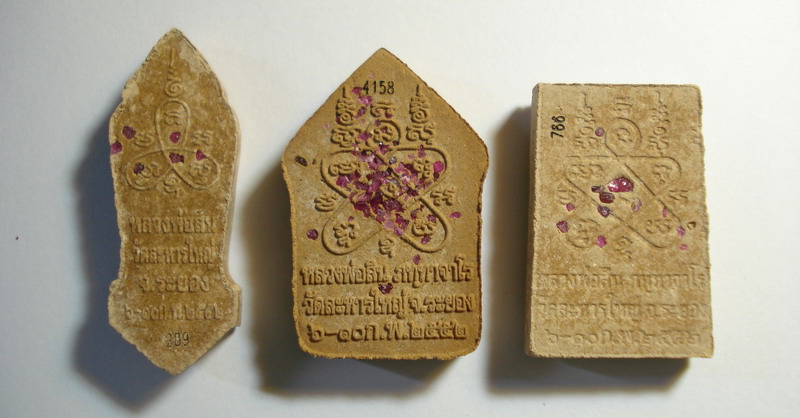 หลวงพ่อสิน
วัดละหารใหญ่
จ.ระยอง
๖-๑๐ก.พ.๒๕๕๒
389
4158
หลวงพ่อสิน ภทฺทาจาโร
วัดละหารใหญ่ จ.ระยอง
๖-๑๐ก.พ.๒๕๕๒
766
หลวงพ่อสิน ภทฺทาจาโร
วัดละหารใหญ่ จ.ระยอง
๖-๑๐ก.พ.๒๕๕๒